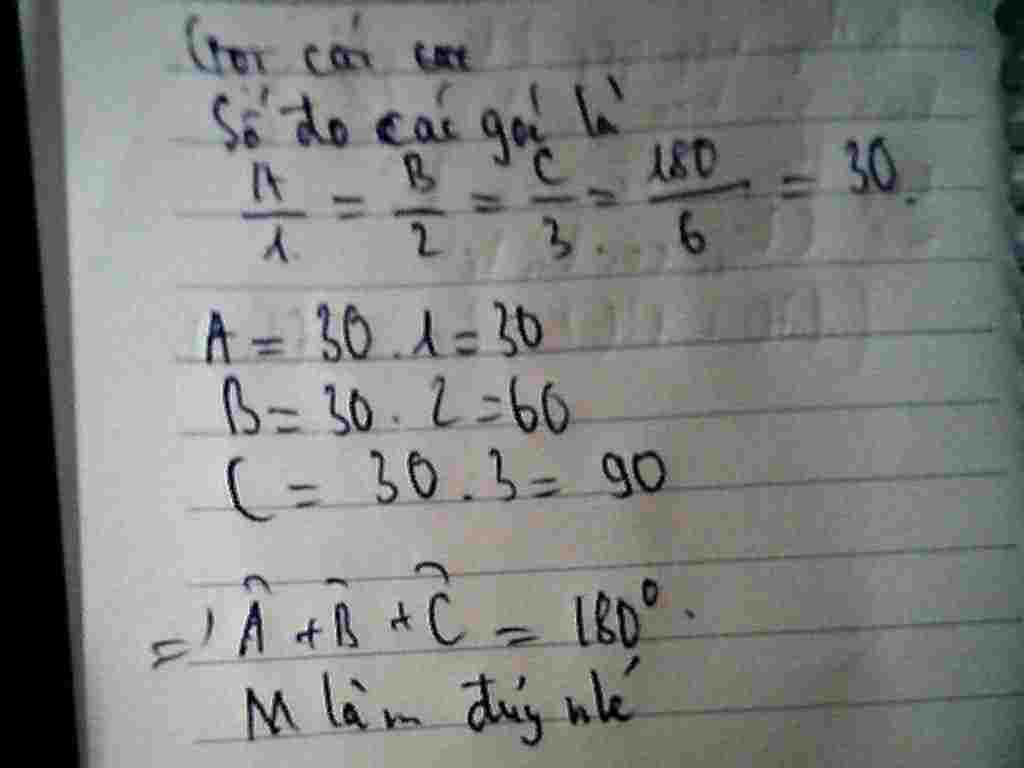 Gọi các
Số đo các góc là
A/1 = B/2 = C/3 = 180/6 = 30.
A = 30 . 1 = 30
B = 30 . 2 = 60
C = 30 . 3 = 90
=> Â + B̂ + Ĉ = 180⁰.
M làm đúg nhé